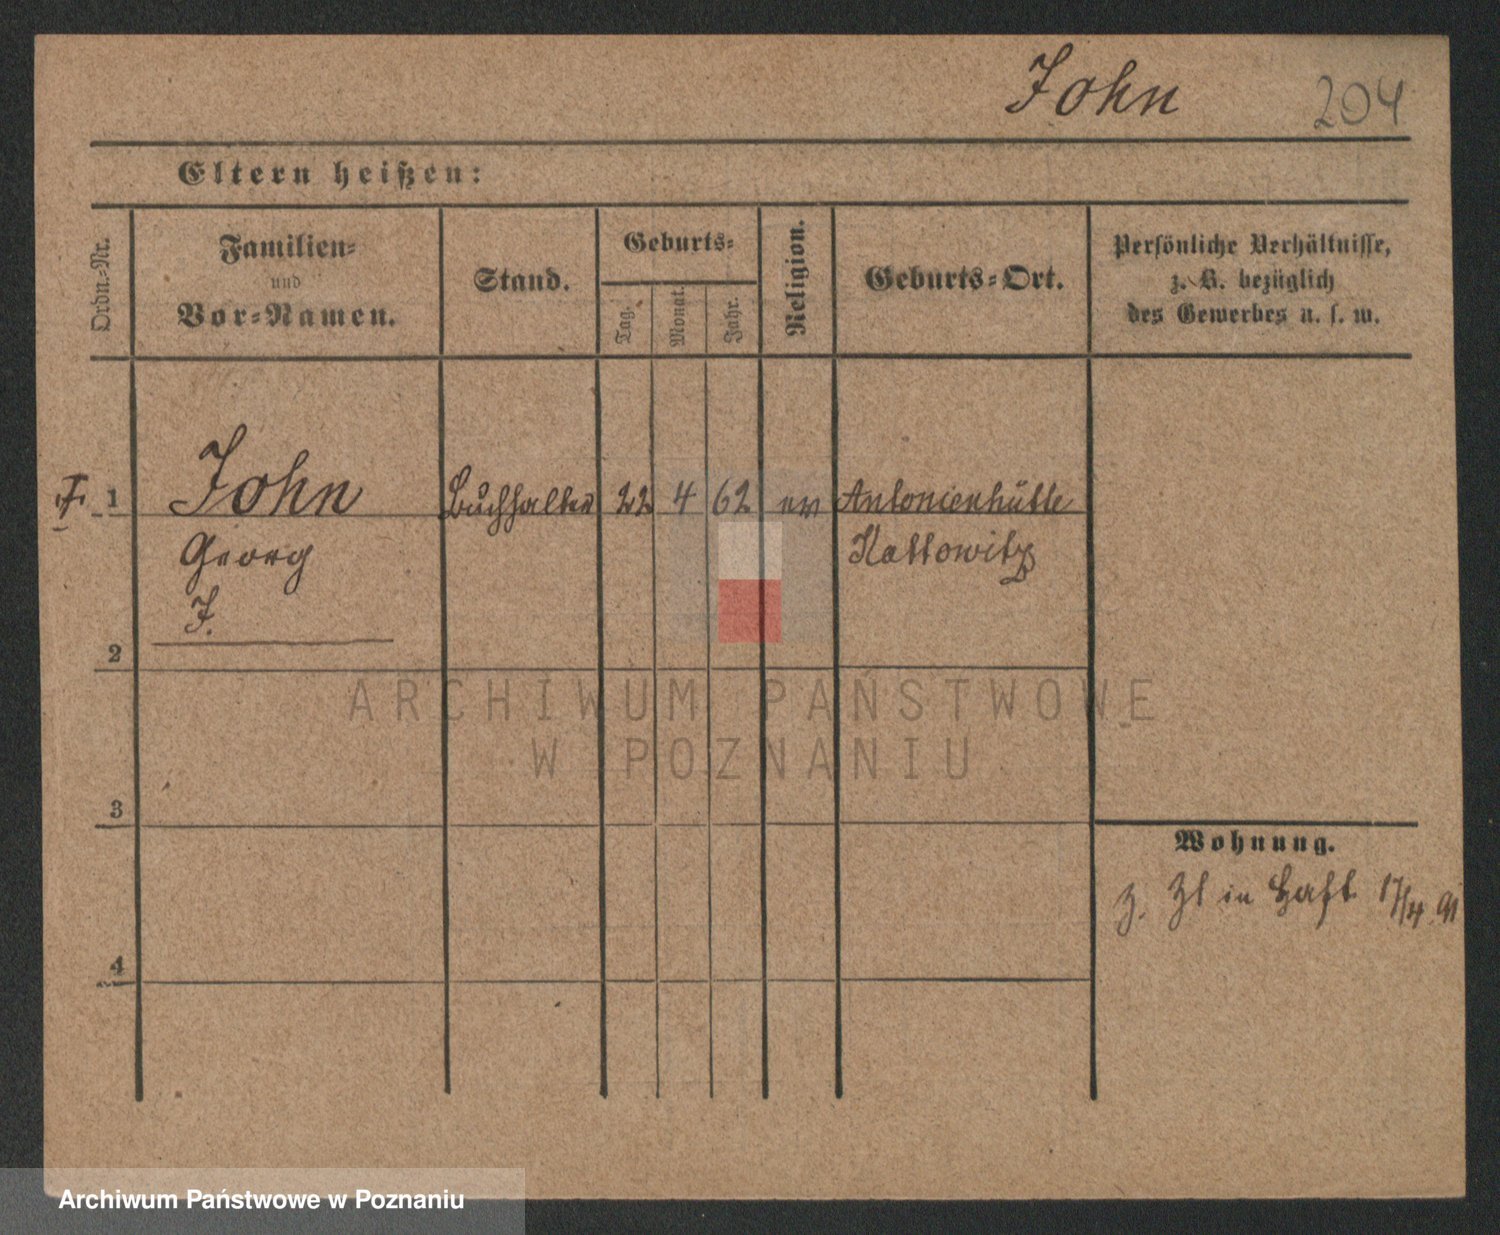 John 204
Eltern heißen:
Ordn.-Nr.
Familien-
und
Vor-Namen.
Stand.
Geburts-
Tag.
Monat.
Jahr.
Religion.
Geburts-Ort.
Persönliche Verhältnisse,
z. B. bezüglich
des Gewerbes u. s. w.
1 John Buchhalter 22 4 62 ev Antonienhütte
Georg Kattowitz
J.
2
3
4
Wohnung.
z. Zt in Haft 17/4 91
ARCHIWUM PAŃSTWOWE
W POZNANIU
Archiwum Państwowe w Poznaniu